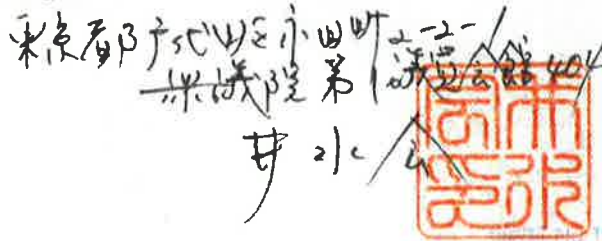 東京都千代田区永田町2-2-1
衆議院第一議員会館404
井水会
井水会印